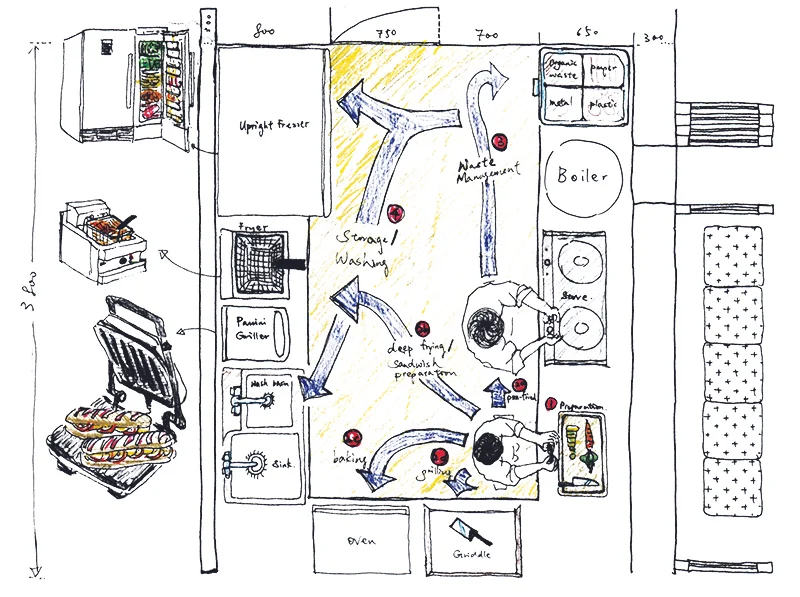 300
800
750
700
650
300
Organic
waste
paper
metal
plastic
Upright Freezer
3
Waste
Management
Boiler
4
Storage/
Washing
Fryer
3800
Stove.
Panini
Griller
deep frying/
sandwish
preparation
pre-fried
1
Preparation
Wash
Sink.
baking
grilling
oven
Griddle